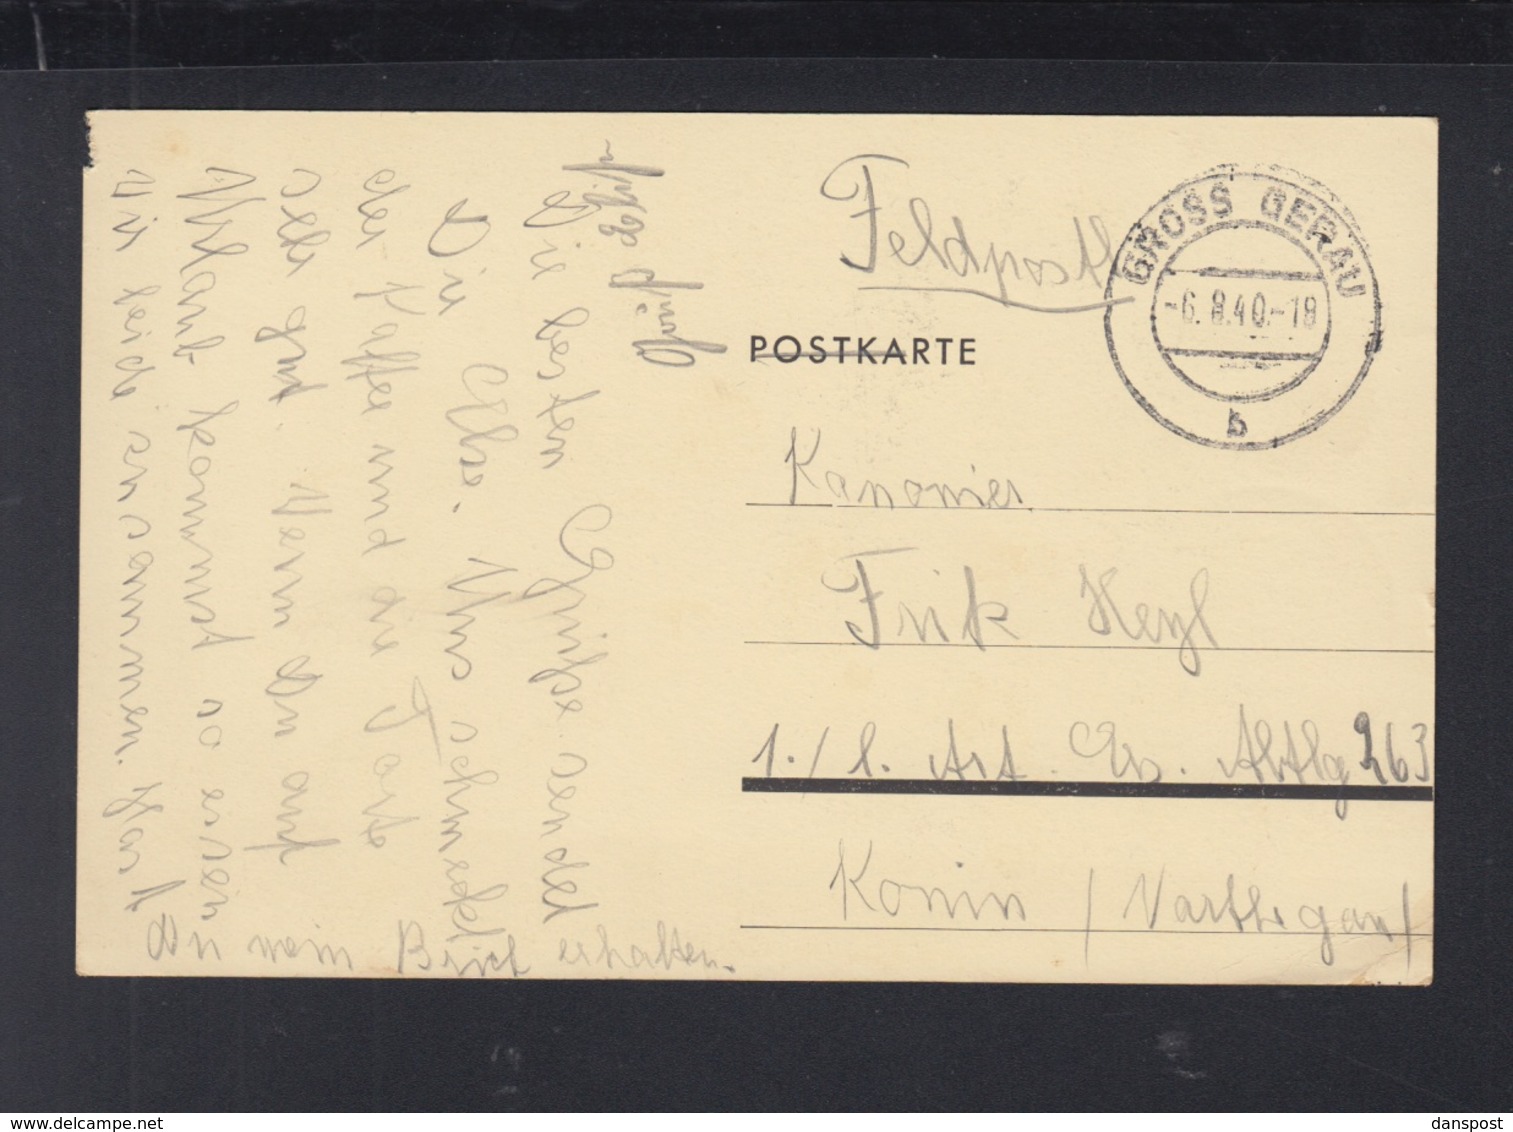 Feldpost
GROSS GERAU
-6.8.40.-18
b
POSTKARTE
Kanonier
Frik Keyl
1./l. Art. Ers. Abtlg 263
Konin / Warthegau /
Die besten Grüße sendet
Dir Else. Uns schmeckt
der Kaffee und die Torte
sehr gut. Wenn Du auf
Urlaub kommst so essen
wir beide zusammen. Hast
Du mein Brief erhalten.
danspost
delcampe.net